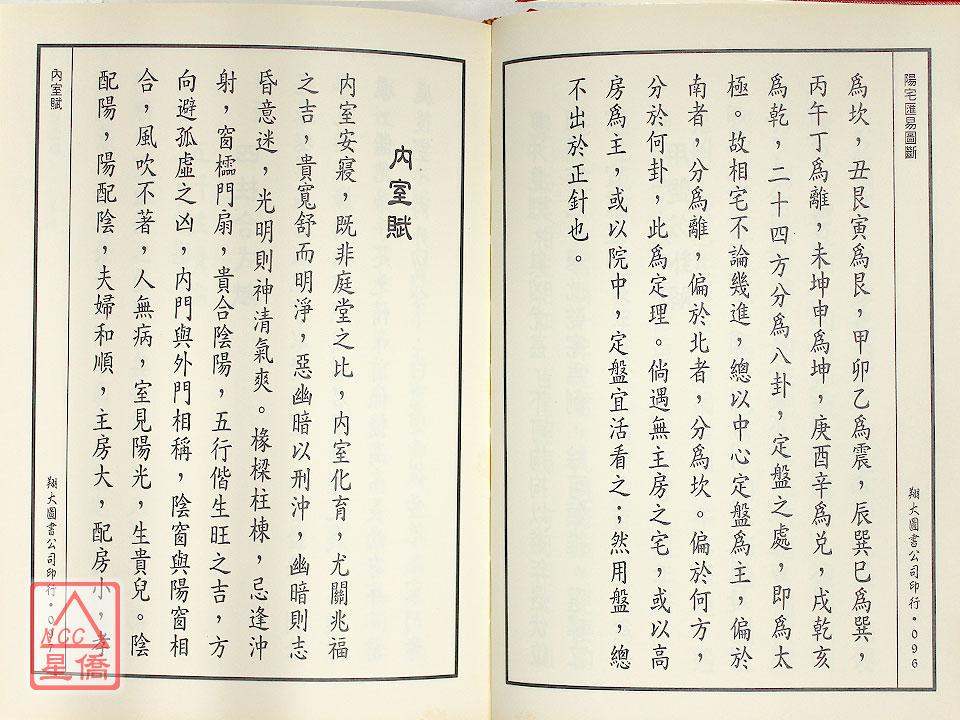 陽宅匯易圖斷
為坎，丑艮寅為艮，甲卯乙為震，辰巽巳為巽，
丙午丁為離，未坤申為坤，庚酉辛為兌，戌乾亥
為乾，二十四方分為八卦，定盤之處，即為太
極。故相宅不論幾進，總以中心定盤為主，偏於
南者，分為離，偏於北者，分為坎。偏於何方，
分於何卦，此為定理。倘遇無主房之宅，或以高
房為主，或以院中，定盤宜活看之；然用盤，總
不出於正針也。
翔大圖書公司印行•096
內室賦
內室安寢，既非庭堂之比，內室化育，尤關兆福
之吉，貴寬舒而明淨，惡幽暗以刑沖，幽暗則志
昏意迷，光明則神清氣爽。椽樑柱棟，忌逢沖
射，窗櫺門扇，貴合陰陽，五行偕生旺之吉，方
向避孤虛之凶，內門與外門相稱，陰窗與陽窗相
合，風吹不著，人無病，室見陽光，生貴兒。陰
配陽，陽配陰，夫婦和順，主房大，配房小，孝
內室賦
翔大圖書公司印行•097
NCC
星僑